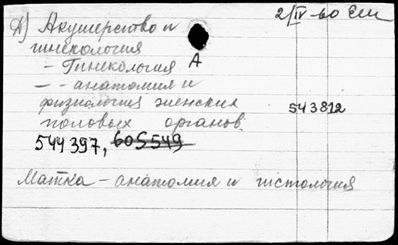 2/IV-60 Ем
А) Акушерство и
гинекология
- Гинекология А
- - анатомия и
физиология женских
половых органов. 543812
544397, 605549
Матка - анатомия и гистология